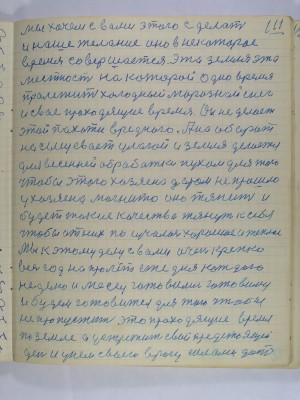 111
мы хочем с вами этого сделать
и наше желание оно в некоторое
время совершается. Эта земля эта
местность на которой одно время
пролежит холодный морозный снег
и свое проходящие время. Он не делает
этой пахоти вредного. А на оборот
насищевает влагой и земля делается
для весенней обработки пухом для того
чтобы этого хозяена даром не прошло
у хозяена магнито оно тянит и
будет такие качества тянут к себе
чтобы от них получалось хорошое и теплое
Мы к этому делу с вами очень крепко
вей год на пролёт еже дня каждого
неделю и месец готовили готовили
и будем готовится для того чтобы
не пропустить это проходящие время
по земле а устретить свой предстоящей
ден и умем своего врагу